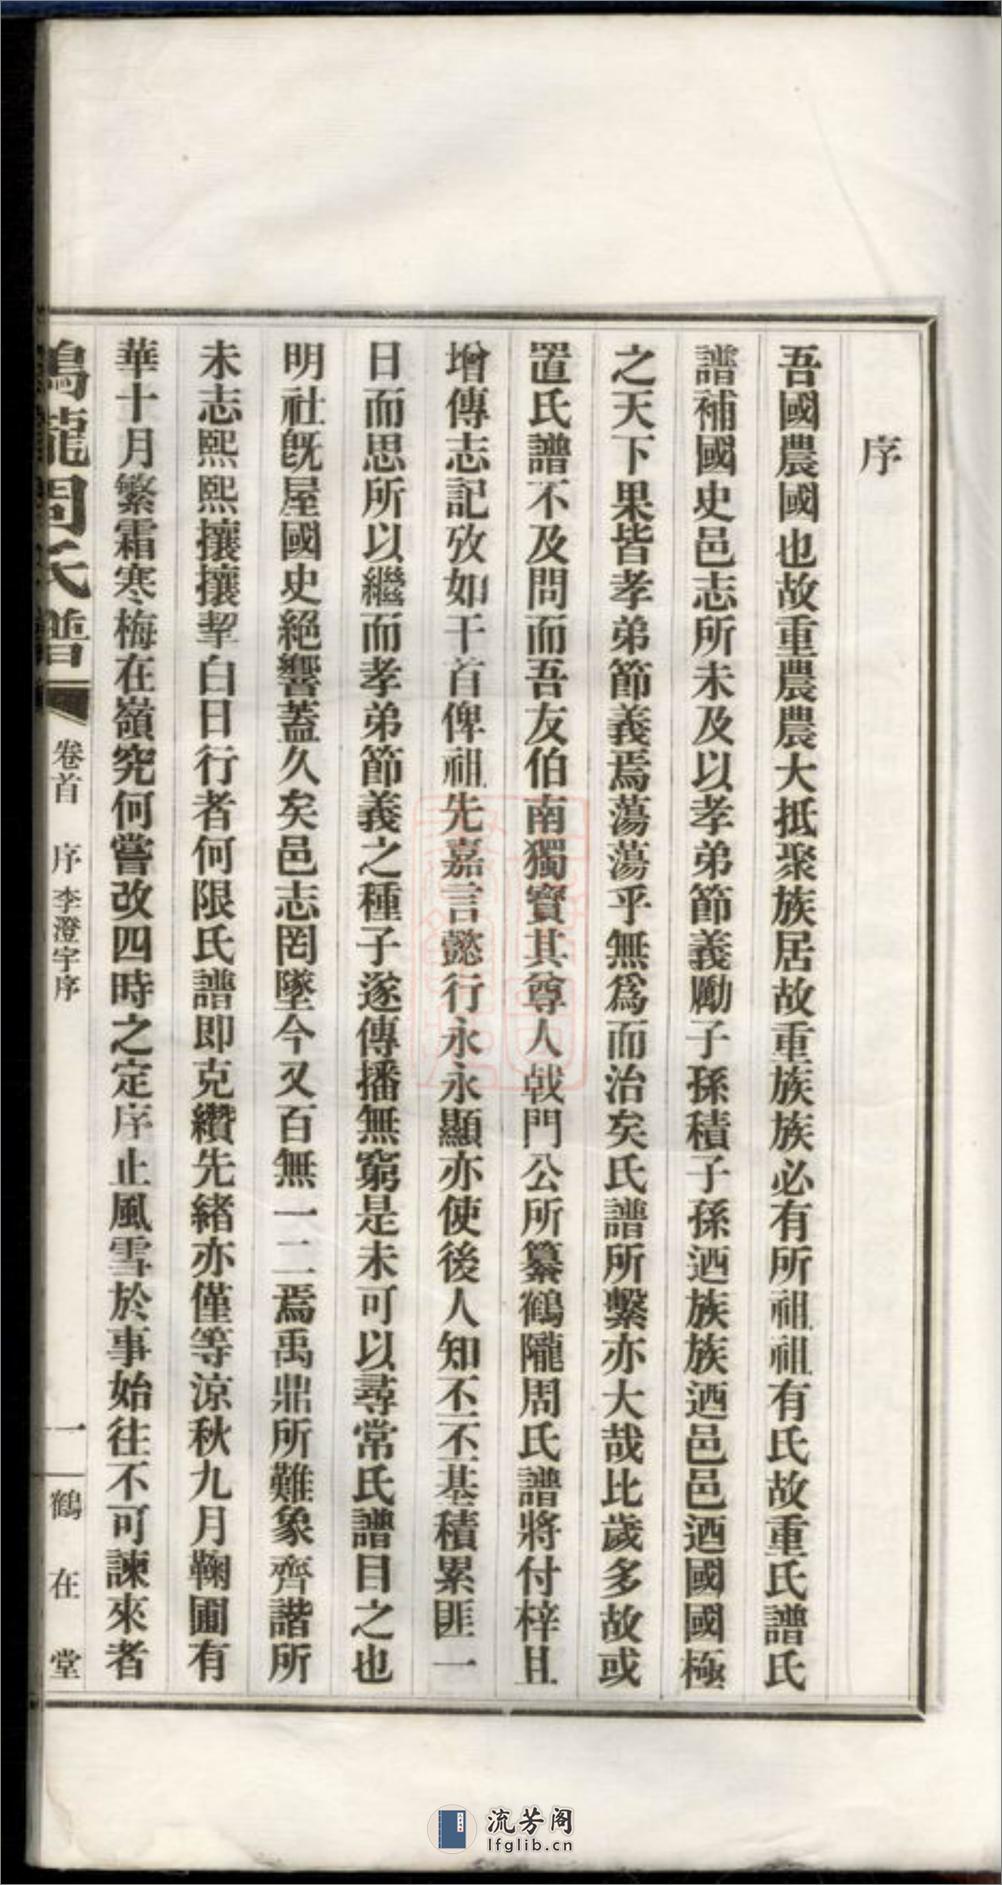 序
吾國農國也故重農農大抵聚族居故重族族必有所祖祖有氏故重氏譜氏
譜補國史邑志所未及以孝弟節義勵子孫積子孫迺族族迺邑邑迺國國極
之天下果皆孝弟節義焉蕩蕩乎無爲而治矣氏譜所繫亦大哉比歲多故或
置氏譜不及問而吾友伯南獨寶其尊人戟門公所纂鶴隴周氏譜將付梓且
增傳志記攷如干首俾祖先嘉言懿行永永顯亦使後人知不丕基積累匪一
日而思所以繼而孝弟節義之種子遂傳播無窮是未可以尋常氏譜目之也
明社旣屋國史絕響蓋久矣邑志罔墜今又百無一二焉禹鼎所難象齊諧所
未志熙熙攘攘挈白日行者何限氏譜即克纘先緒亦僅等涼秋九月鞠圃有
華十月繁霜寒梅在嶺究何嘗改四時之定序止風雪於事始往不可諫來者
鶴隴周氏譜
卷首 序 李澄宇序
一 鶴在堂
流芳阁
lfglib.cn